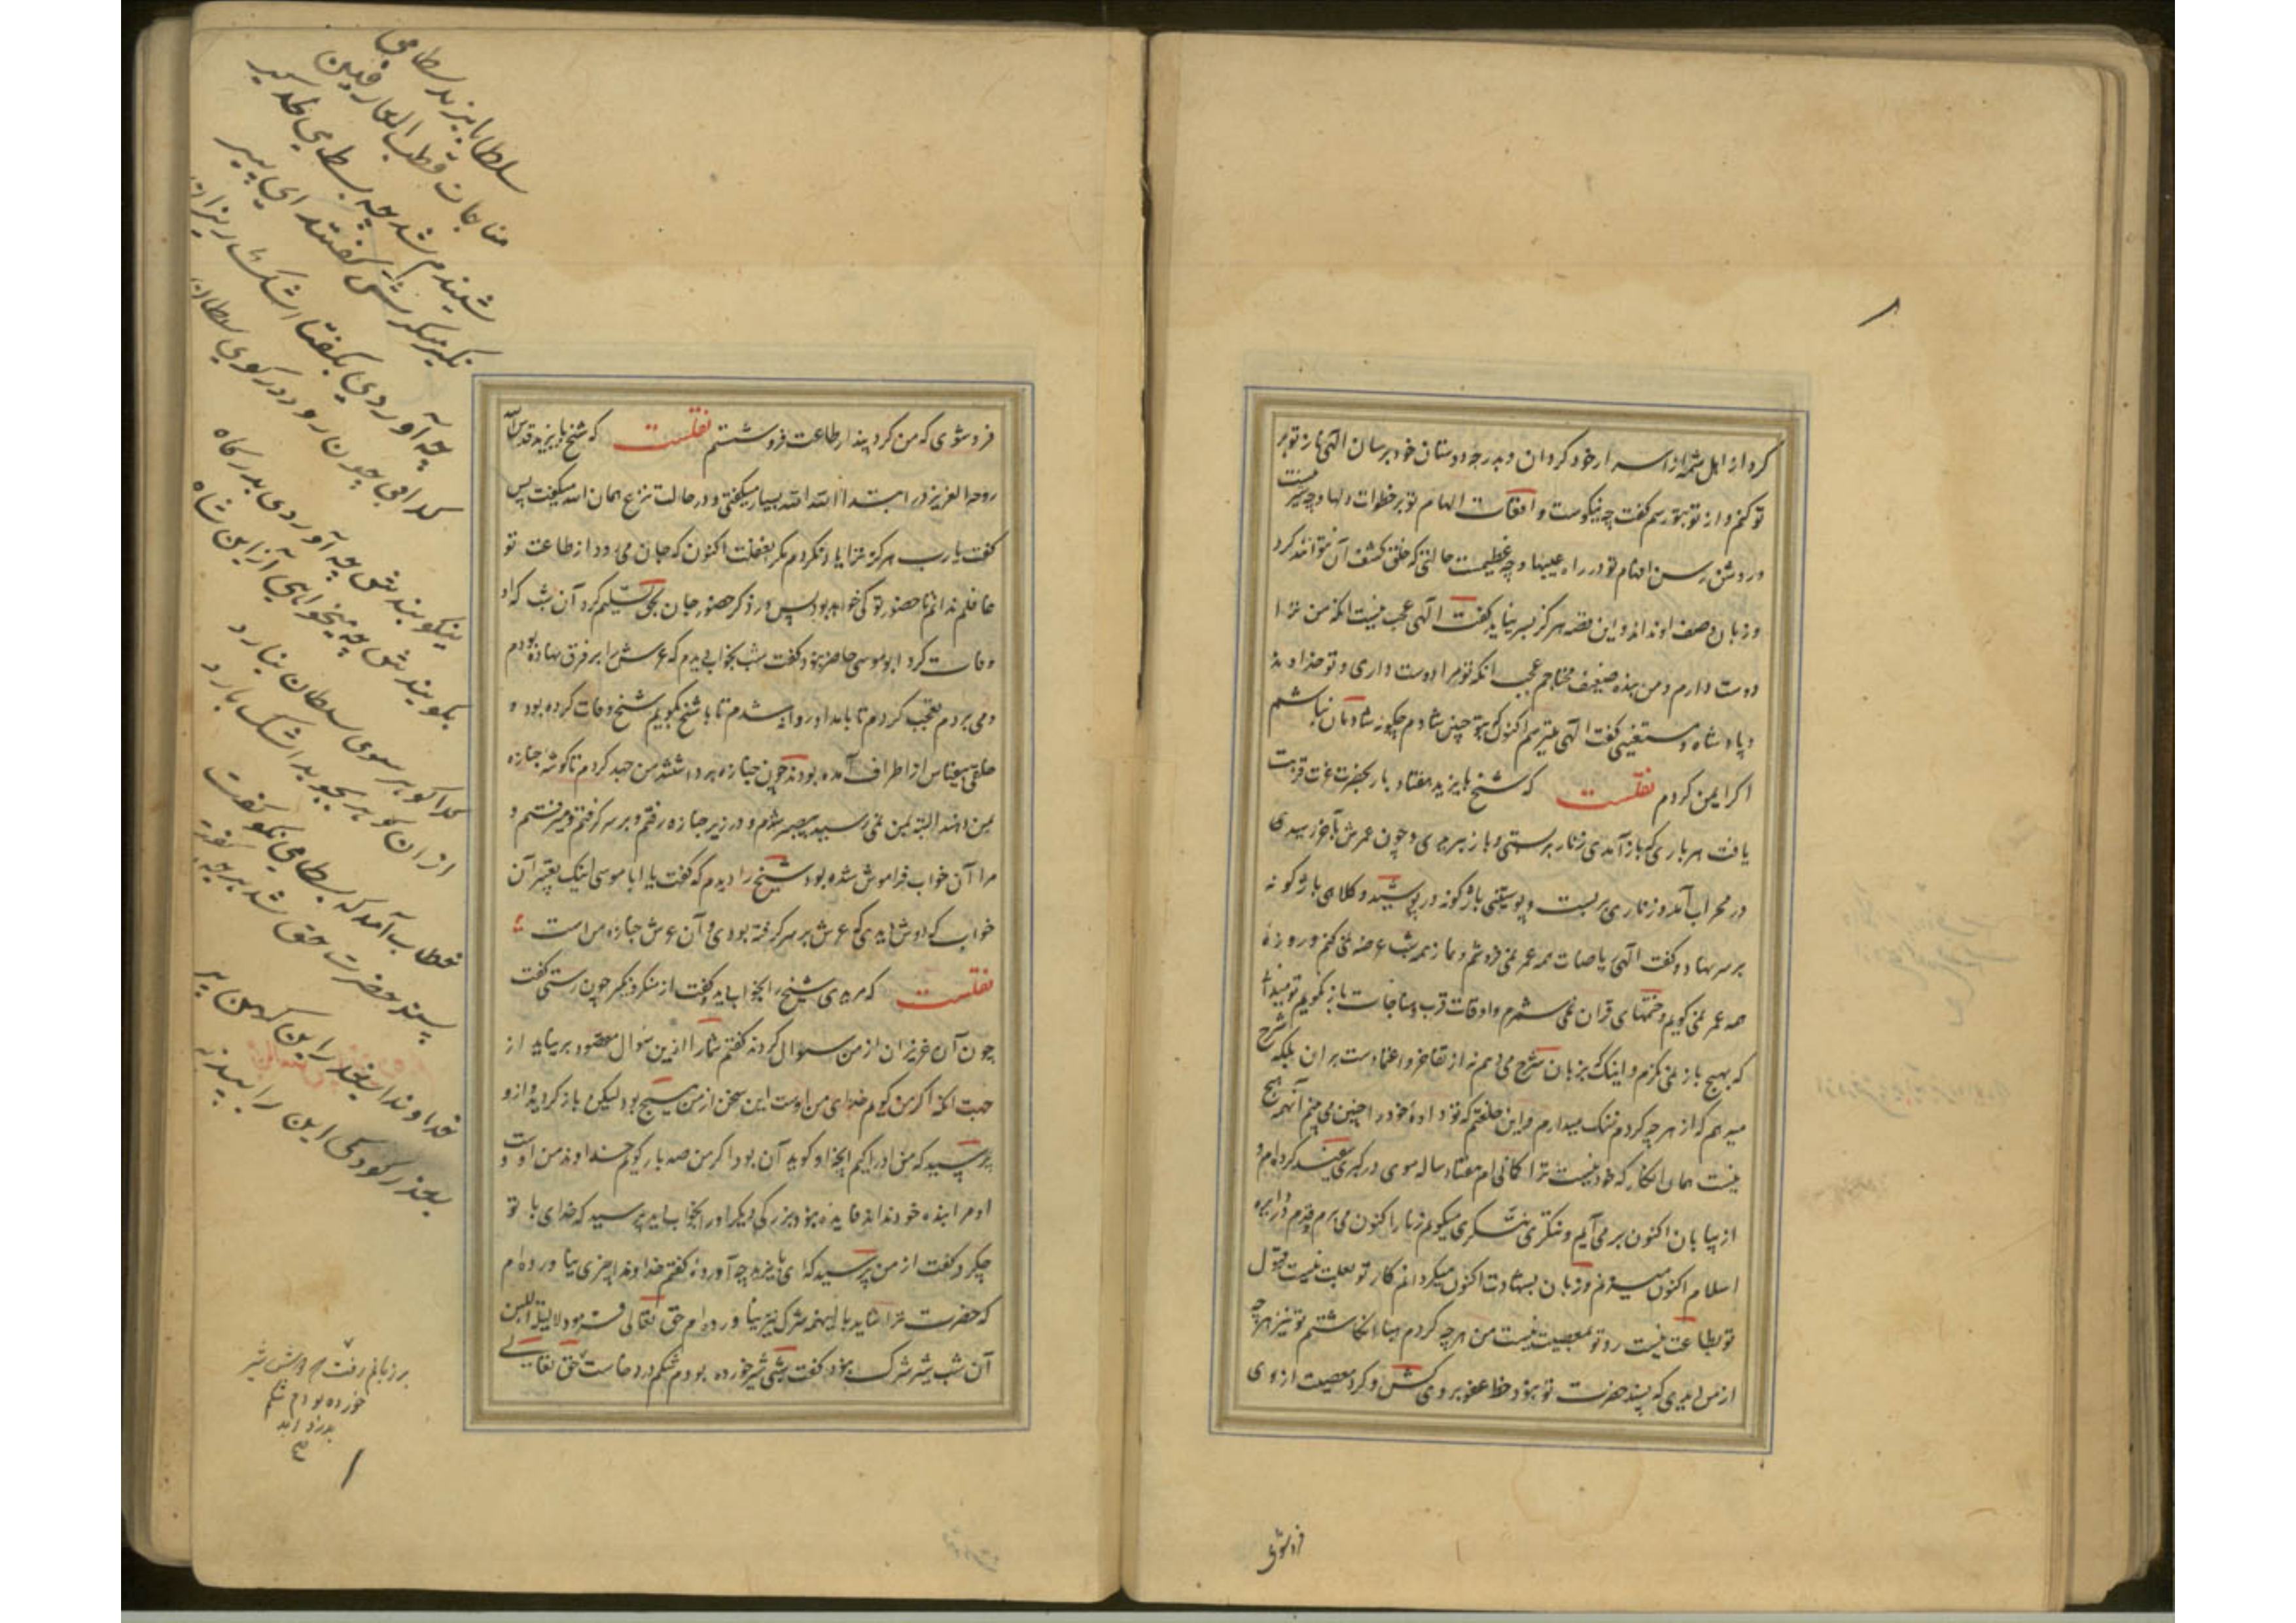 کرد از اهل شمه از اسرار خود کردان و بدرجه دوستان خود برسان الهی ناز تو بر
تو کنم و از تو بتو رسم گفت چه نیکوست واقعات الهام تو بر خطرات دلها و چه شیرینست
و روشن افهام تو در راه غیبها و چه عظیمست حالتی که خلق کشف آن نتوانند کرد
و زبان وصف او نداند و این قصه هرگز بسر نیاید گفت الهی عجب نیست انکه من ترا
دوست دارم و من بنده ضعیف محتاجم عجب انکه تو مرا دوست داری و تو خداوند
و پادشاه و مستغنی گفت الهی میترسم اکنون که بتو چنین شادم چگونه شادمان نباشم
اگر ایمن گردم نقلست که شیخ بایزید هفتاد بار بحضرت عزت قربت
یافت هر باری که باز آمدی زنار بر بستی و باز ببریدی و چون عمرش بآخر رسیدی
در محراب آمد و زناری بر بست و پوستینی باژگونه در پوشید و کلاهی باژگونه
بر سر نهاد و گفت الهی ریاضات همه عمر نمی فروشم و نماز همه شب عرضه نمی کنم و روزه
همه عمر نمی گویم و ختمهای قران نمی شمرم و اوقات قرب و مناجات باز نگویم تو میدانی
که بهیچ باز نمی نگرم و اینک بزبان شرح می دهم نه از تفاخر و اعتمادست بران بلکه شرح
میدهم که از هرچه کردم ننگ میدارم و این خلعتم که تو داده خود را چنین می بینم آنهمه هیچ
نیست همان انگار که خود نیست ترکمانی ام هفتاد ساله موی در گبری سفید کرده ام و
از بیابان اکنون بر می آیم و تنگری تنگری میگویم زنار اکنون می برم و قدم در دایره
اسلام اکنون میزنم و زبان بشهادت اکنون میگردانم کار تو بعلت نیست قبول
تو بطاعت نیست رد تو بمعصیت نیست من هرچه کردم هبا انگاشتم تو نیز هرچه
از من دیدی که پسند حضرت تو نبود خط عفو بر وی کش و گرد معصیت از وی
فروشوی
فروشوی که من گرد پندار طاعت فروشستم نقلست که شیخ بایزید قدس الله
روحه العزیز در ابتدا الله الله بسیار میگفتی و در حالت نزع همان الله میگفت پس
گفت یارب هرگز ترا یاد نکردم مگر بغفلت اکنون که جان می رود از طاعت تو
غافلم ندانم تا حضور تو کی خواهد بود پس در ذکر و حضور جان بحق تسلیم کرد آن شب که او
وفات کرد ابو موسی حاضر نبود گفت بشب بخواب دیدم که عرش را بر فرق نهاده بودم
و می بردم تعجب کردم تا بامداد روانه شدم تا با شیخ بگویم شیخ وفات کرده بود و
خلقی بیقیاس از اطراف آمده بودند چون جنازه برداشتند من جهد کردم تا گوشه جنازه
بمن دهند البته بمن نمی رسید بیصبر شدم و در زیر جنازه رفتم و بر سر گرفتم و میرفتم و
مرا آن خواب فراموش شده بود شیخ را دیدم که گفت یا ابا موسی اینک تعبیر آن
خواب که دوش دیدی که عرش بر سر گرفته بودی و آن عرش جنازه من است
نقلست که مریدی شیخ را بخواب دید و گفت از منکر و نکیر چون رستی گفت
چون آن عزیزان از من سوال کردند گفتم شما را ازین سوال مقصود بر نیاید از
جهت انکه اگر من گویم خدای من اوست این سخن از من هیچ بود لیکن باز گردید و ازو
بپرسید که من او را کیم انچه او گوید آن بود اگر من صد بار گویم خداوند من اوست و
او مرا بنده خود نداند فایده نبود بزرگی دیگر او را بخواب دید پرسید که خدای با تو
چکرد گفت از من پرسید که ای بایزید چه آورده گفتم خداوندا چیزی نیاورده ام
که حضرت ترا شاید با اینهمه شرک نیز نیاورده ام حق تعالی فرمود لا لیلة اللبن
آن شب شیر شرک نبود گفت شبی شیر خورده بودم شکمم درد خاست حق تعالی
سلطان بایزید بسطامی
مناجات قطب العارفین
شنیدم شد چه بسطامی
نکیر منکرش گفتند ای پیر
چه آوردی بگفتا اشک ریزان
گدایی چون رود در کوی سلطان
نگویندش چه آوردی بدرگاه
بگویندش چه میخواهی ازین شاه
گدا گوهر سوی سلطان نیارد
از ان گوهر بجوید اشک بارد
خطاب آمد که بسطامی نکو گفت
پسند حضرت حق شد هر چه گفت
خداوندا بیخدر این کهن پیر
بعذر کودکی این را بپذیر
بر زبانم رفت که دوش شیر
خورده بودم شکم
بدرد آمد